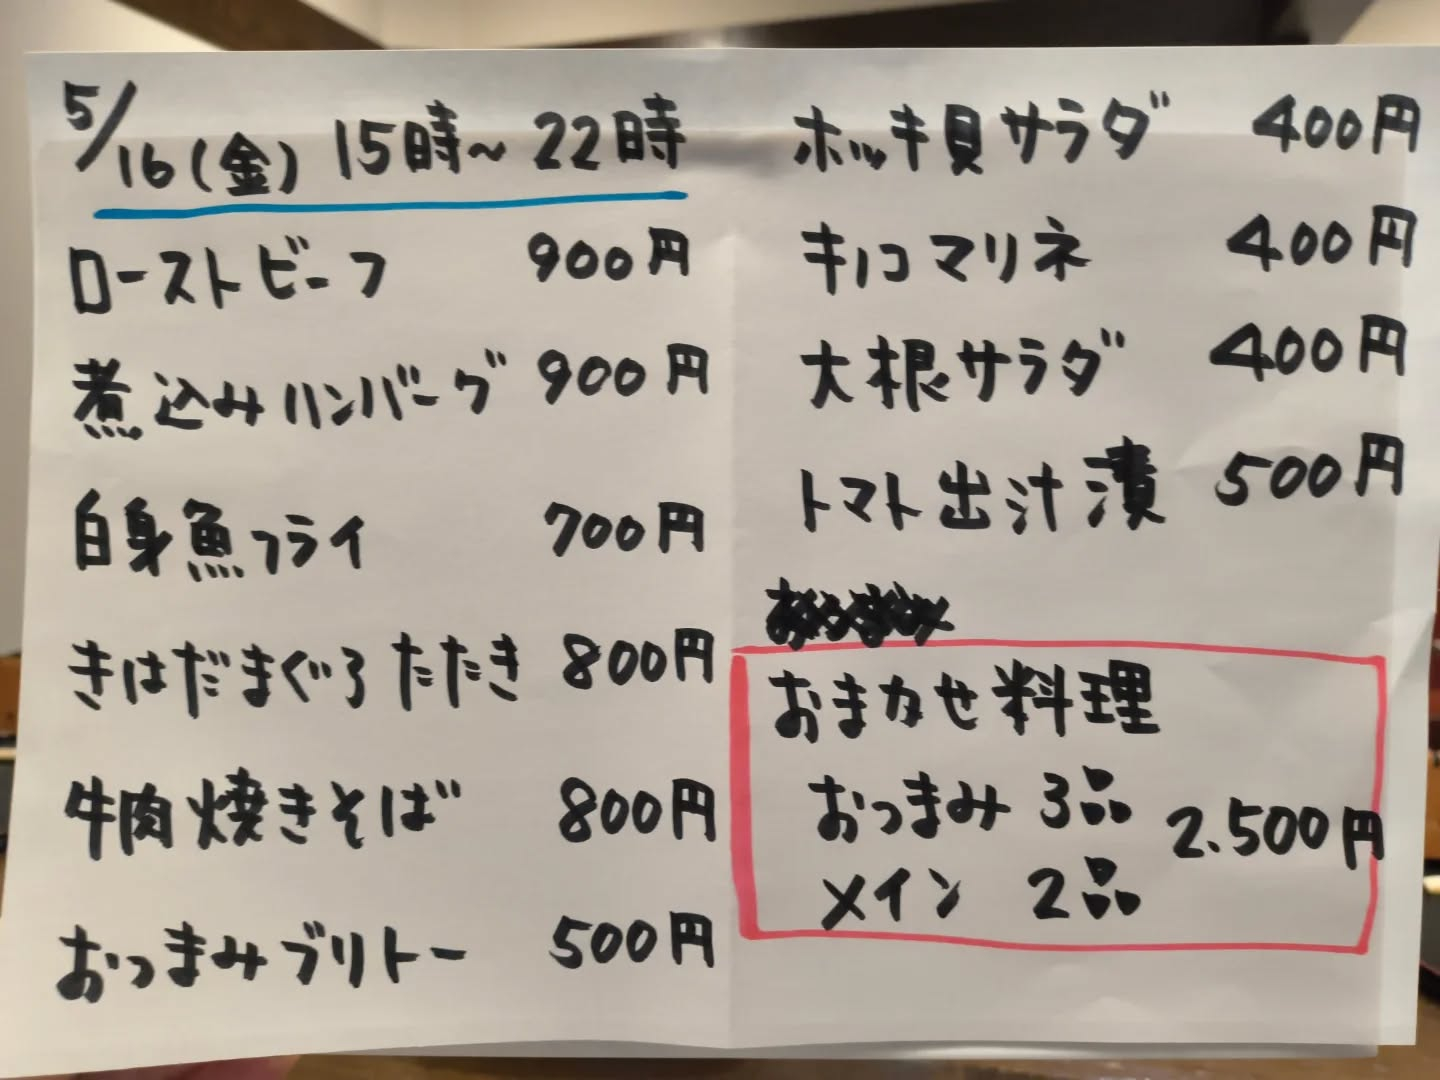 5/16(金) 15時~22時
ローストビーフ 900円
煮込みハンバーグ 900円
白身魚フライ 700円
きはだまぐろたたき 800円
牛肉焼きそば 800円
おつまみブリトー 500円
ホッキ貝サラダ 400円
キノコマリネ 400円
大根サラダ 400円
トマト出汁漬 500円
おまかせ料理
おつまみ 3品
2.500円
メイン 2品